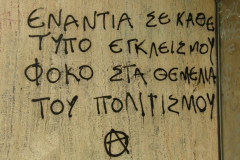 ΕΝΑΝΤΙΑ ΣΕ ΚΑΘΕ
ΤΥΠΟ ΕΓΚΛΕΙΣΜΟΥ
ΦΟΚΟ ΣΤΑ ΘΕΜΕΛΙΑ
ΤΟΥ ΠΟΛΙΤΙΣΜΟΥ
Ⓐ